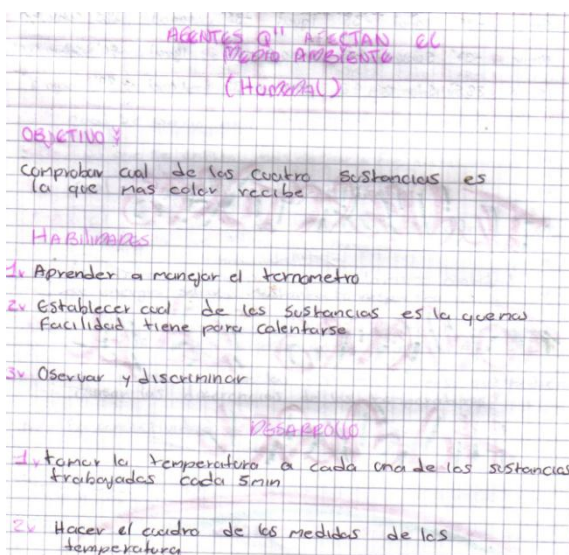 AGENTES Q" AFECTAN EL
MEDIO AMBIENTE
(Humana()
OBJETIVO
comprobar cual de las cuatro sustancias es
la que mas color recibe
HABILIDADES
1. Aprender a manejar el termometro
2. Establecer cual de las sustancias es la que mas
Facilidad tiene para calentarse
3. Oservar y discriminar
DESARROLLO
1. tomar la temperatura a cada una de las sustancias
trabajadas cada 5min
2. Hacer el cuadro de las medidas de las
temperatura